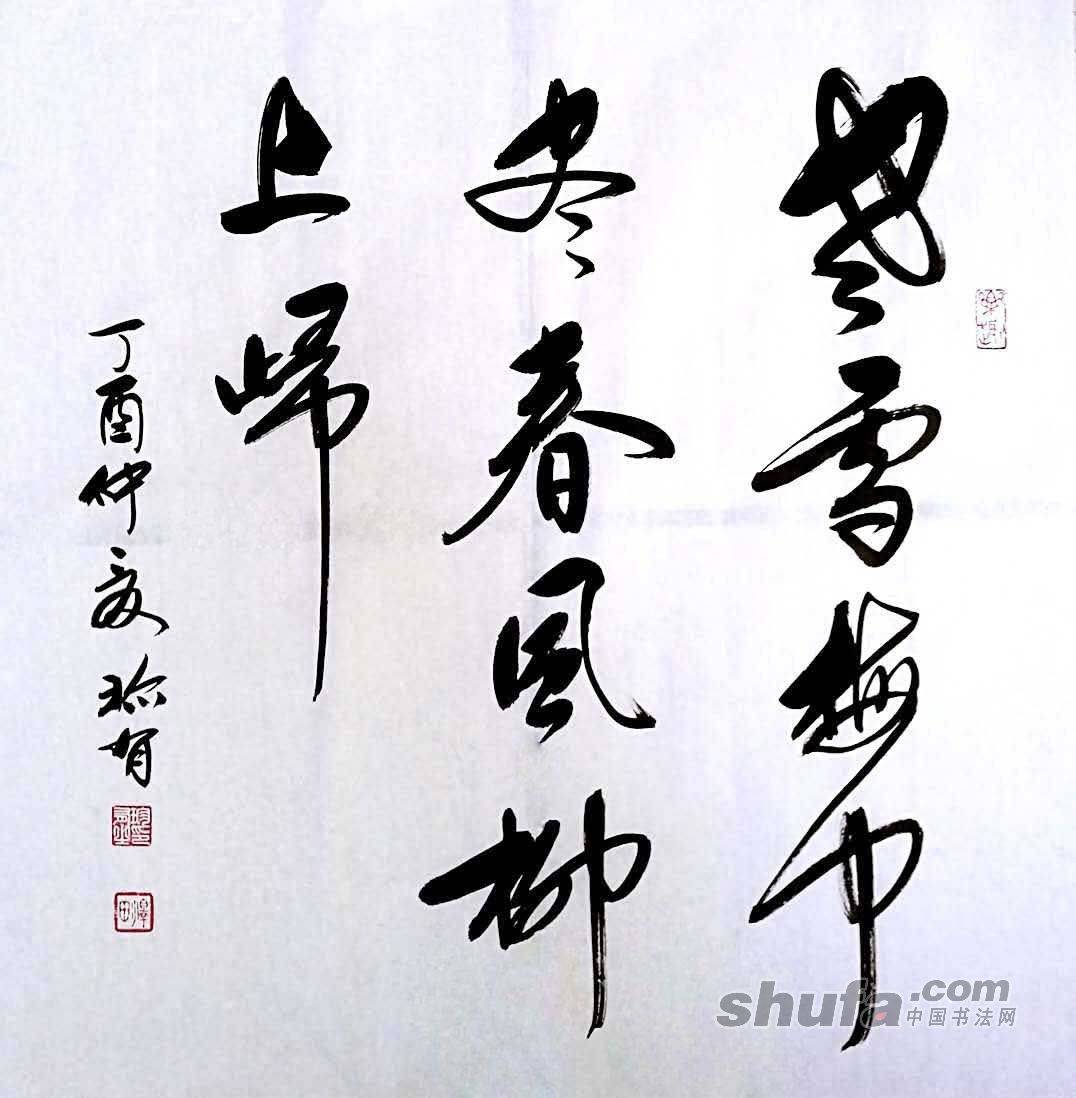 寒雪梅中
尽春風柳
上歸
丁酉仲夏
shufa.com
中国书法网